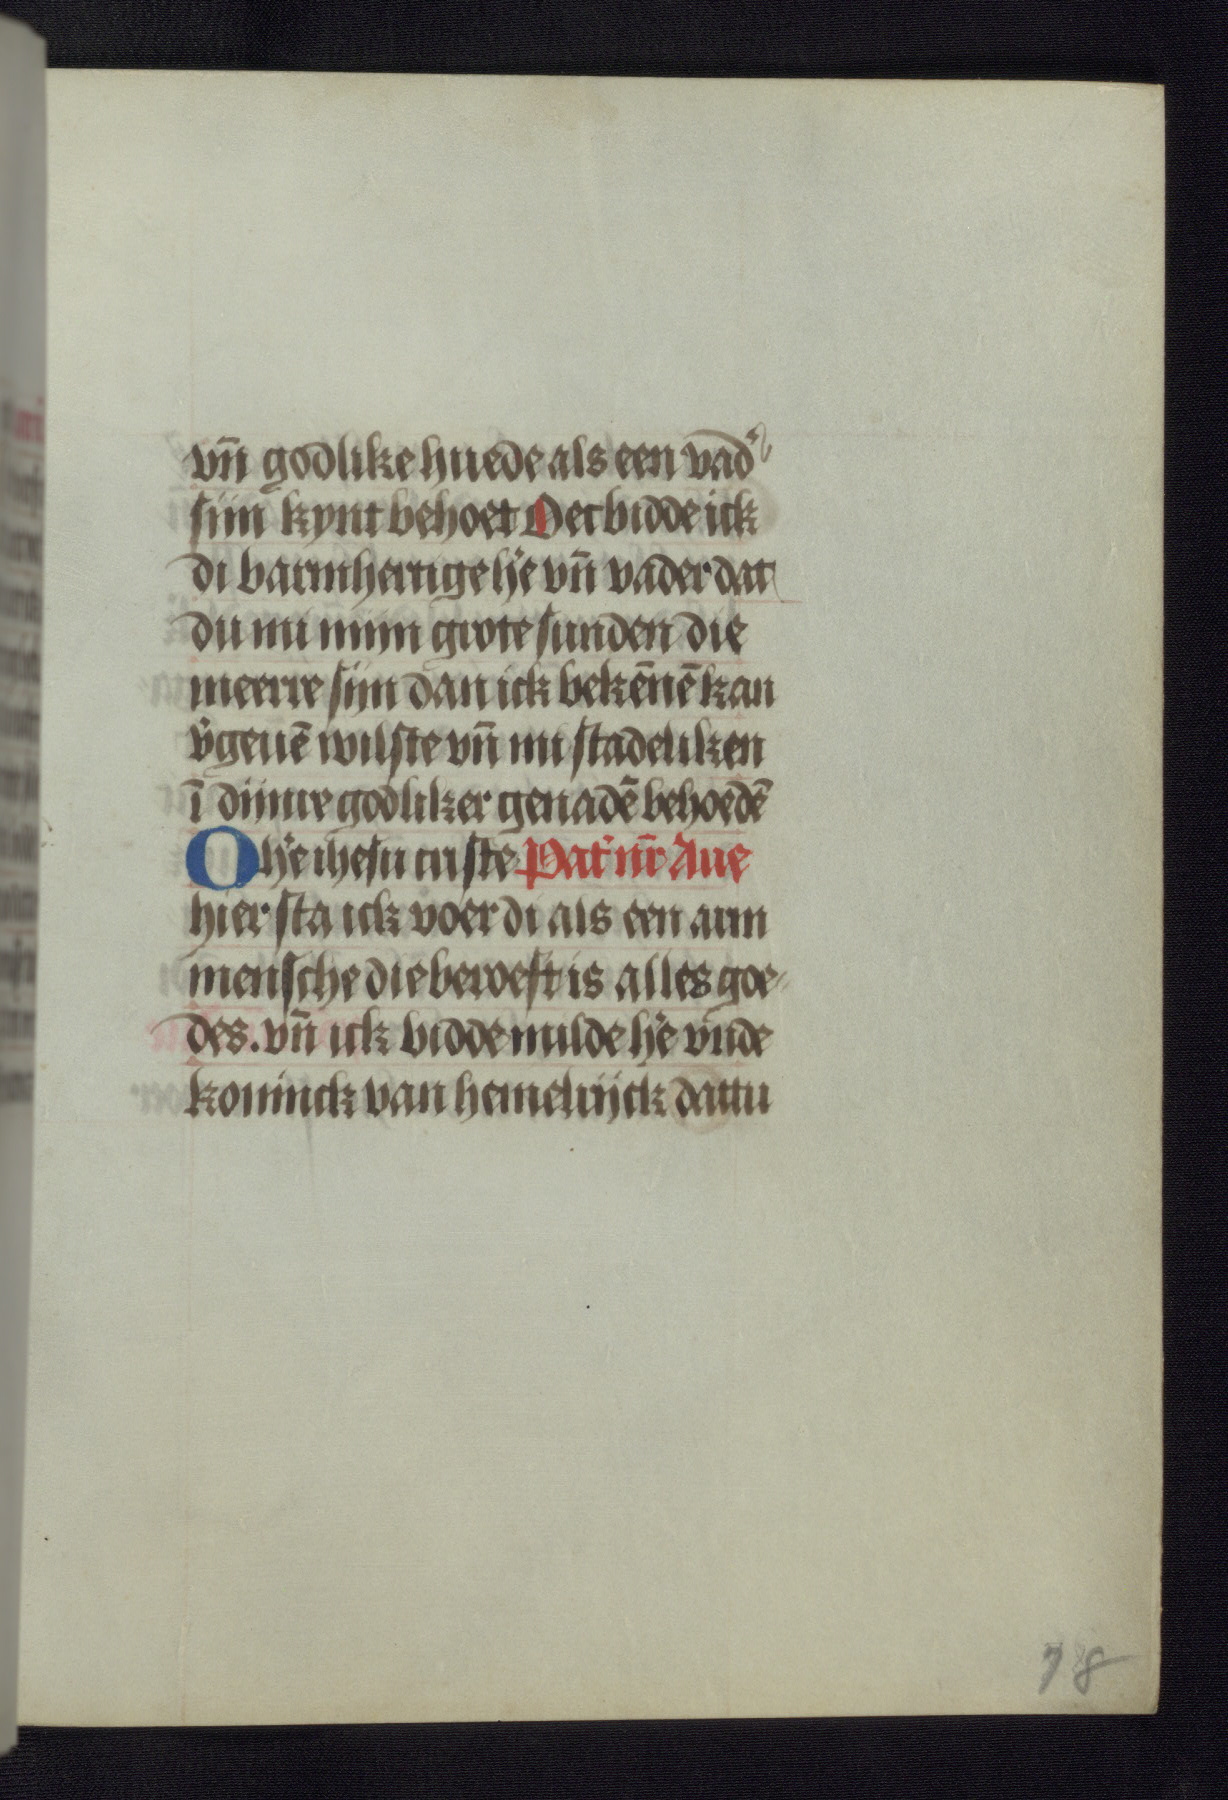 vn̄ godlike huede als een vad᷒
sijn kynt behoet Oec bidde ick
di barmhertige hr̄e vn̄ vader dat
du mi mijn grote sunden die
meerre sijn dan ick bekēnē kan
v᷒geuē wilste vn̄ mi stadeliken
ī dijnre godliker genadē behoedē
O hr̄e ihesu criste Pat᷒ nr̄ Aue
hier sta ick voer di als een arm
mensche die beroeft is alles goe-
des. vn̄ ick bidde milde hr̄e vn̄de
koninck van hemelrijck dattu
78